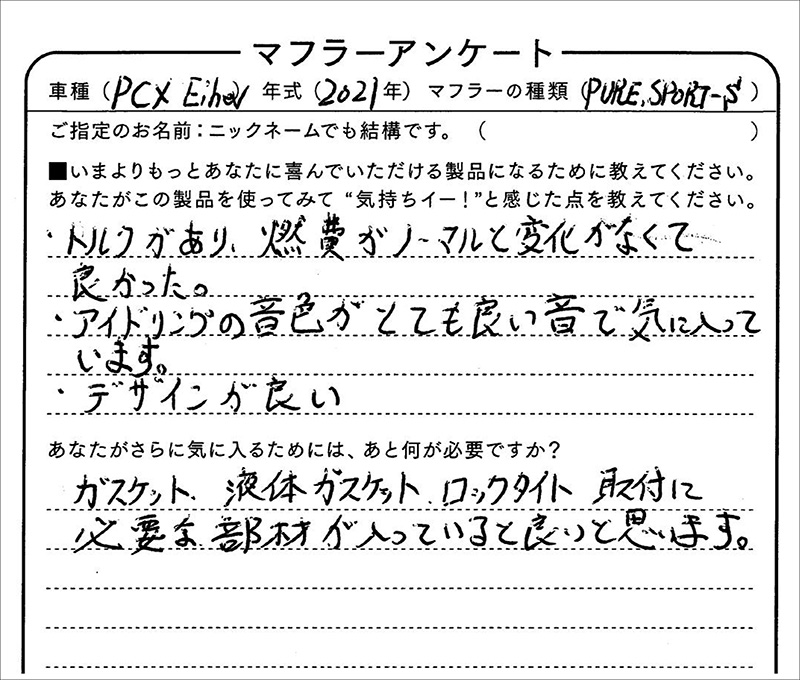 マフラーアンケート
車種（PCX E:hev）年式（2021年）マフラーの種類（PURE, SPORT-S）
ご指定のお名前：ニックネームでも結構です。（　　　）
■いまよりもっとあなたに喜んでいただける製品になるために教えてください。
あなたがこの製品を使ってみて“気持ちイー！”と感じた点を教えてください。
・トルクがあり、燃費がノーマルと変化がなくて
良かった。
・アイドリングの音色がとても良い音で気に入って
います。
・デザインが良い
あなたがさらに気に入るためには、あと何が必要ですか？
ガスケット、液体ガスケット、ロックタイト 取付に
必要な部材が入っていると良いと思います。